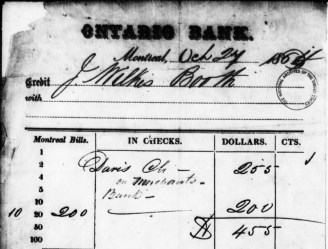 ONTARIO BANK.
Montreal, Oct 27 186
Credit J. Wilkes Booth
with
Montreal Bills. IN CHECKS. DOLLARS. CTS.
1
2 Davis Ch 255
4 on Merchants
5 Bank
10 200 10 200
20 $ 455
50
100